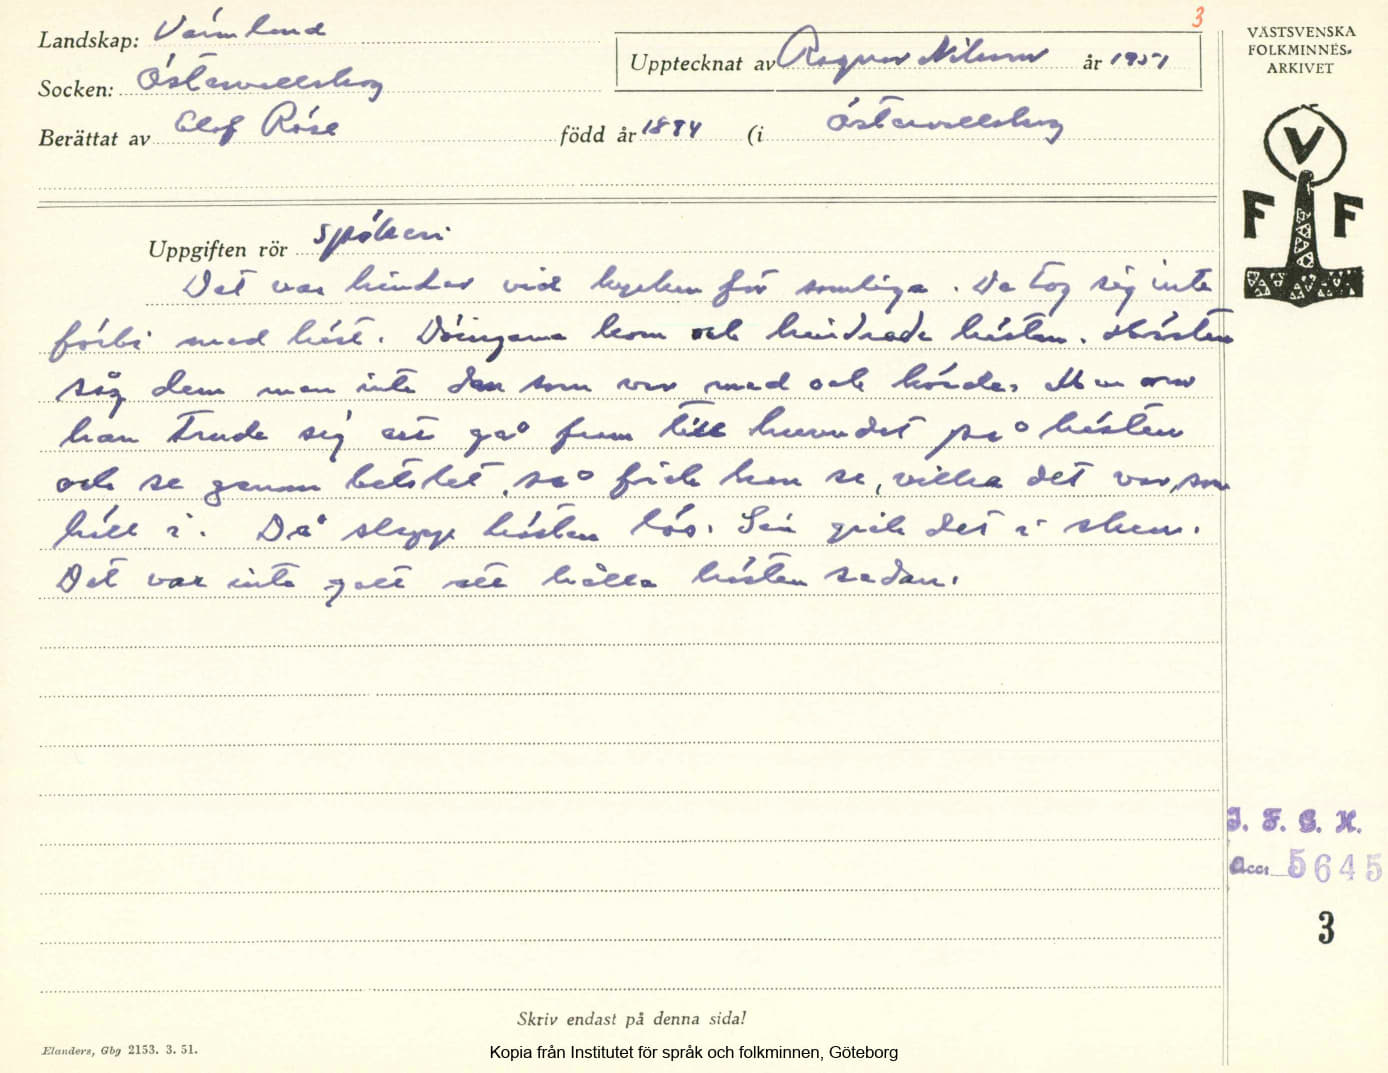 3
Landskap: Värmland
Upptecknat av Ragnar Nilsson år 1951
Socken: Östervallskog
Berättat av Olof Röse född år 1874 (i Östervallskog
VÄSTSVENSKA
FOLKMINNES-
ARKIVET
V
F F
Uppgiften rör spökeri
Det var hinder vid kyrkan för somliga. De tog sig inte
förbi med häst. Döingarna kom och hindrade hästen. Hästen
såg dem men inte den som var med och körde. Men om
han trude sig att gå fram till huvudet på hästen
och se genom betslet, så fick han se, vilka det var, som
höll i. Då slapp hästen lös. Sen gick det i sken.
Det var inte gott att hålla hästen sedan.
I. F. G. H.
Acc. 5645
3
Skriv endast på denna sida!
Elanders, Gbg 2153. 3. 51.
Kopia från Institutet för språk och folkminnen, Göteborg